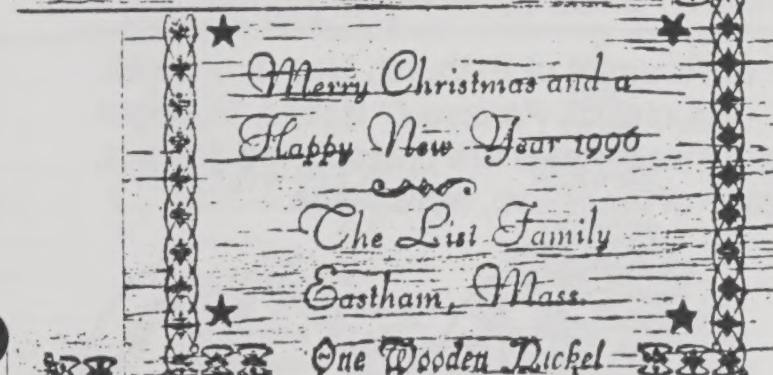 Merry Christmas and a
Happy New Year 1996
The List Family
Eastham, Mass.
One Wooden Nickel